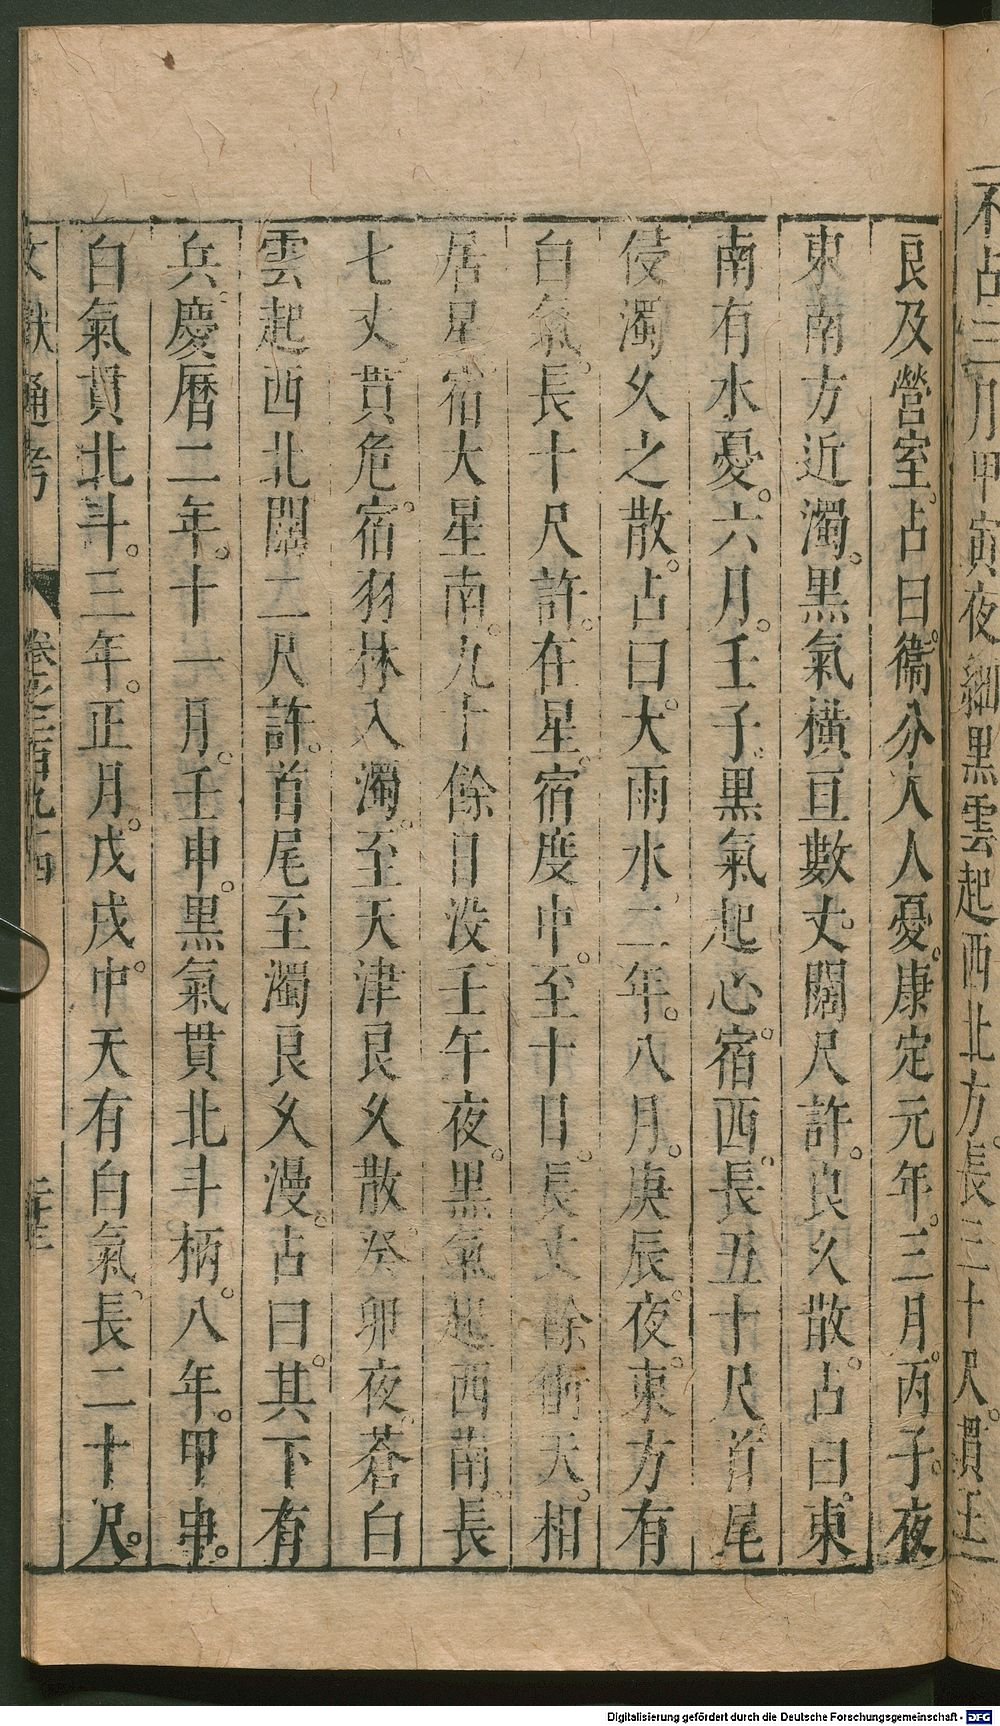 不占三月甲寅夜細黑雲起西北方長三十尺貫王
良及營室占曰衞分大人憂康定元年三月丙子夜
東南方近濁黑氣橫亘數丈闊尺許良久散占曰東
南有水憂六月壬子黑氣起心宿西長五十尺首尾
侵濁久之散占曰大雨水二年八月庚辰夜東方有
白氣長十尺許在星宿度中至十日長丈餘衝天相
居星宿大星南九十餘日没壬午夜黑氣起西南長
七丈貫危宿羽林入濁至天津良久散癸卯夜蒼白
雲起西北闊二尺許首尾至濁良久漫占曰其下有
兵慶曆二年十一月壬申黑氣貫北斗柄八年甲申
白氣貫北斗三年正月戊戌中天有白氣長二十尺
文獻通考 卷之二百九十四
Digitalisierung gefördert durch die Deutsche Forschungsgemeinschaft - DFG